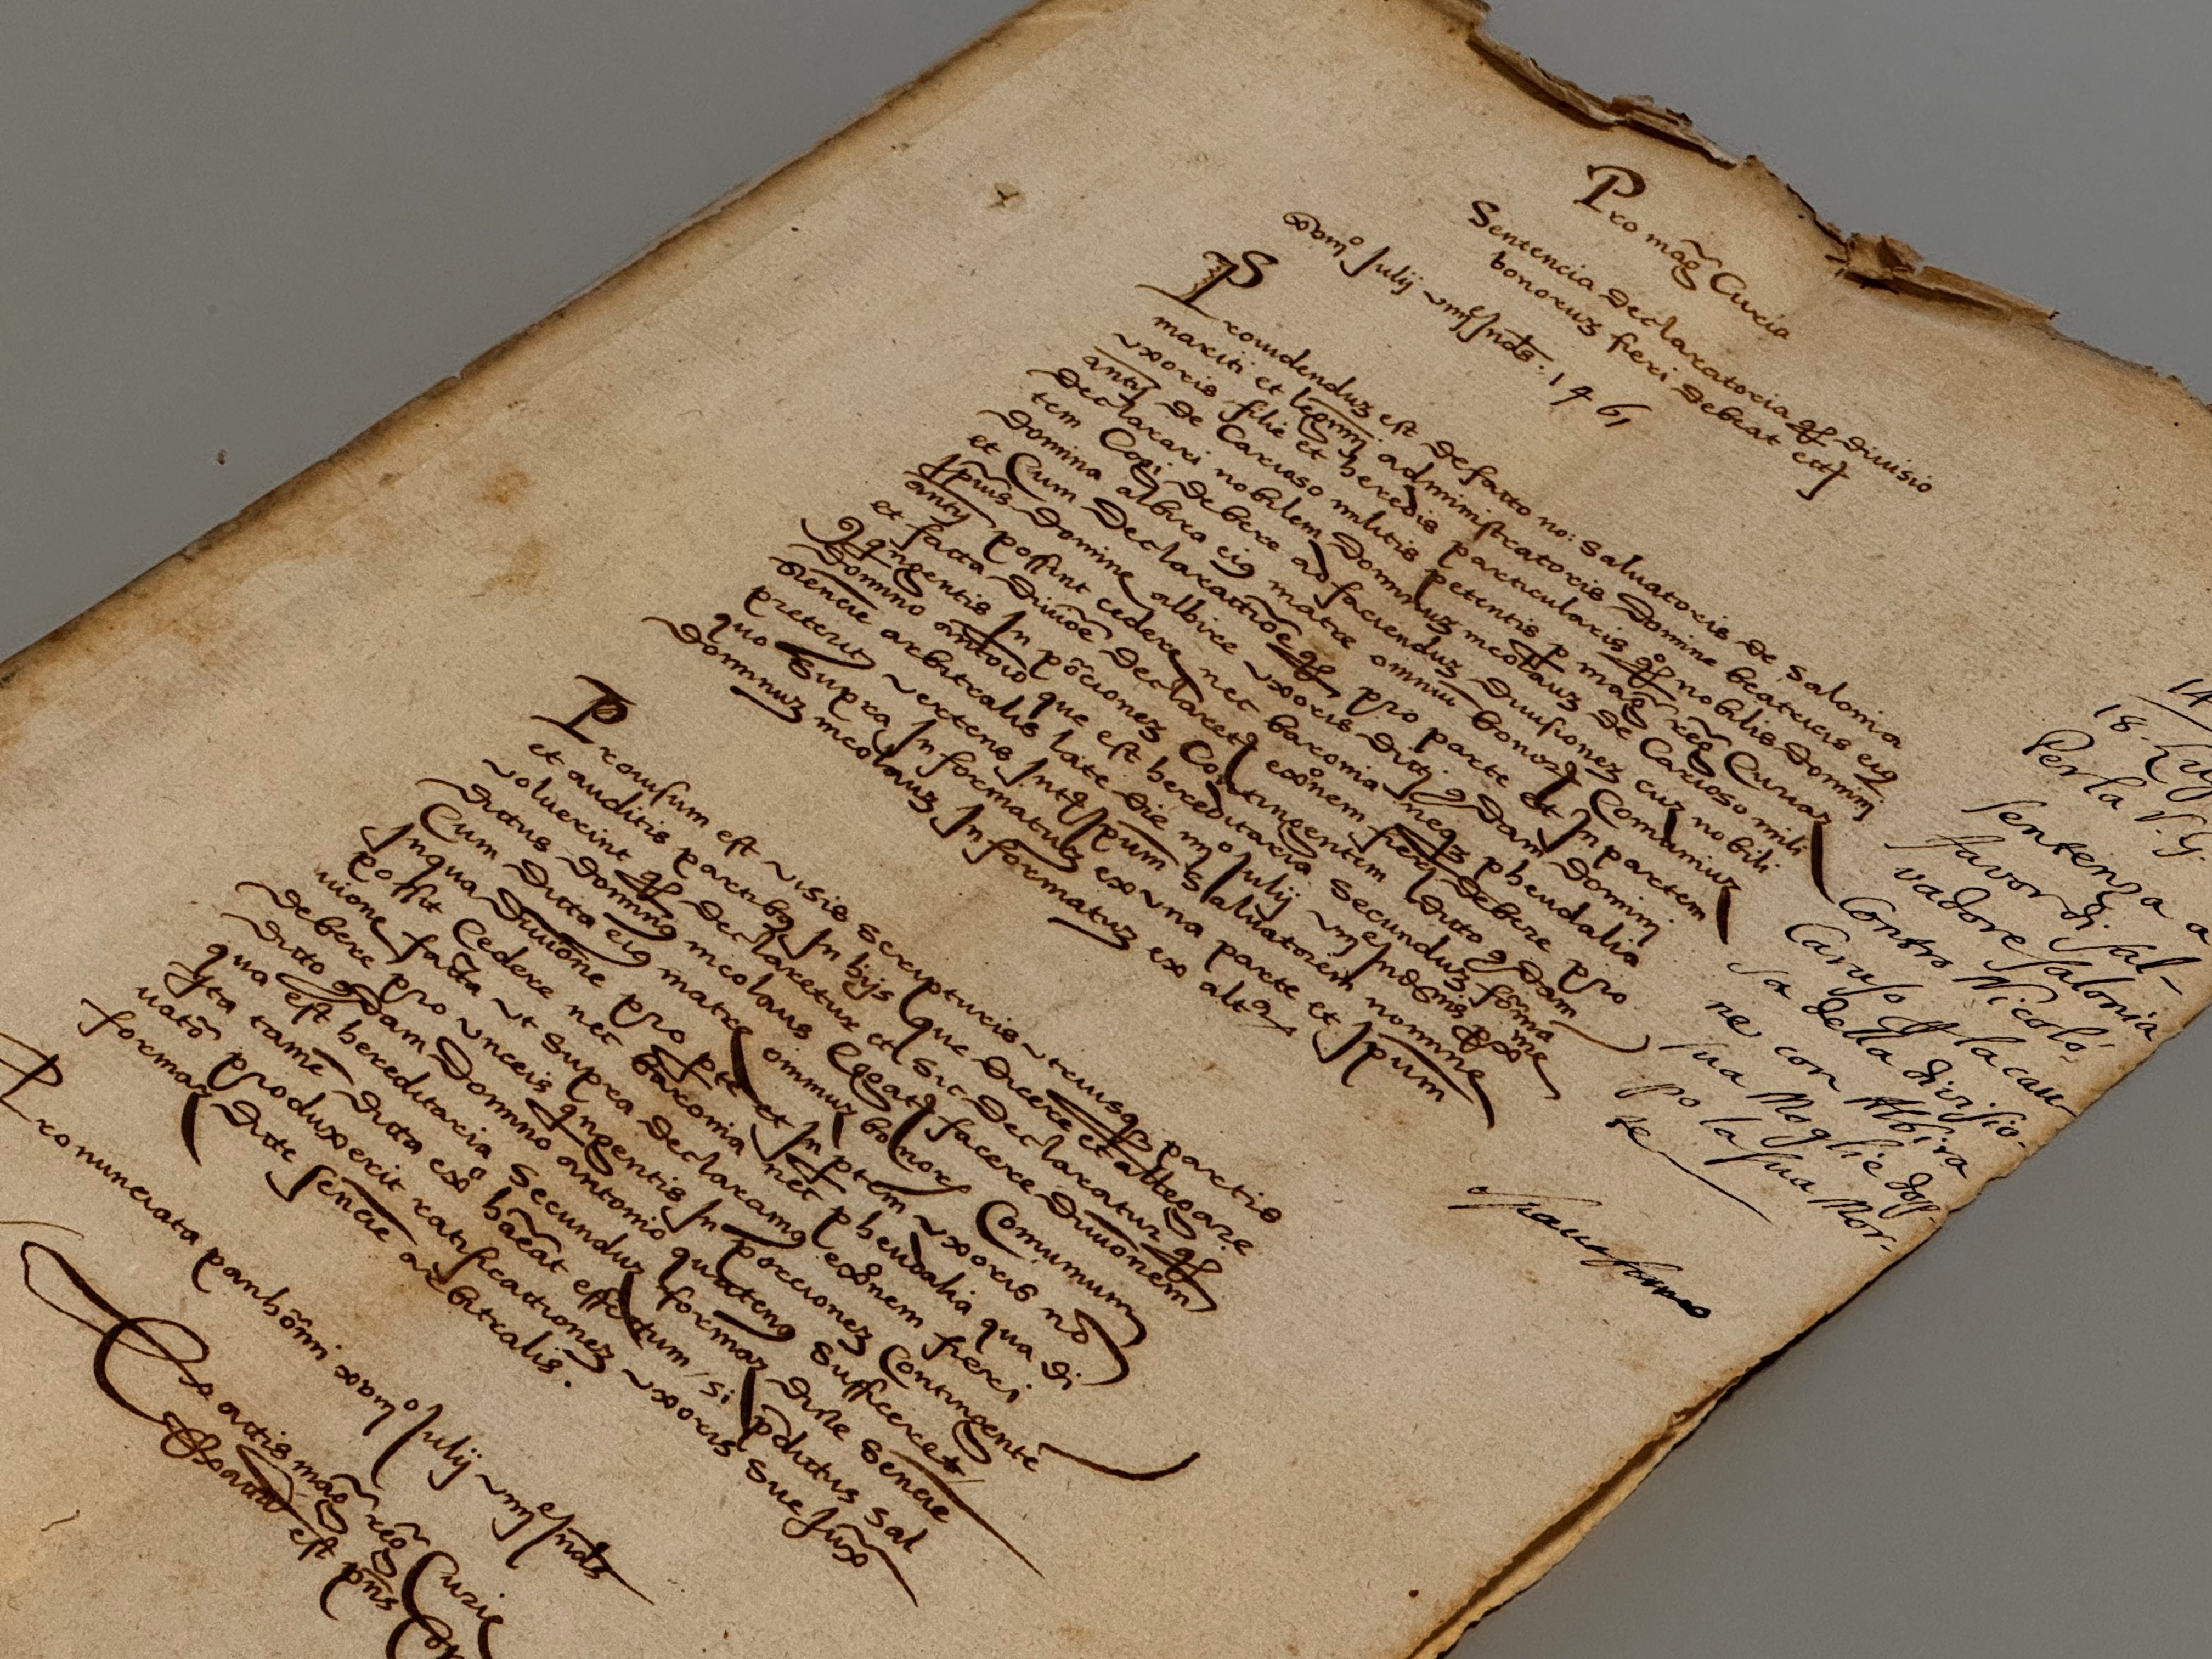 Pro mag Curia
Sentencia declaratoria qd diuisio
bonoruz fieri debeat etc
xviijmo Julij viiije Inds: 1461
Prouidenduz est de facto no: Saluatoris de Salonia
mariti et legimj administratoris domine beatricis eiq
vxoris filie et heredis particularis qo nobilis dominj
antj de Carioso militis petentis p mag reg Curiaz
declarari nobilem domnuz nicolauz de Carioso mili
tem Cogi debere ad facienduz diuisionez cuz nobili
domina albira eiq matre omniu bonorz Comuniuz
et Cum declarattioe qd pro parte et In partem
Ipius domine albire vxoris dittj qdam dominj
antj possint cedere net baronia neqz pheudalia
et fatta diuioe declaretr exonem fieri debere pro
qngentis In pocionez Contingentem ditto qdam
domno antoio que est hereditaria Secunduz forma
Sencie arbitralis late die mo Julij viiije Indonis pxo
preterit vertens Intq Ipum Saluatorem nomine
quo Supra In formatuz ex vna parte et Ipum
domnuz nicolauz In formatuz ex alta
Prouisum est visis Scripturis vtriusq partis
et auditis partibq In hijs que dicere et allegare
voluerint qd declaretur et sic declaratur qd
dittus domnq nicolaus Cogatr facere diuionem
Cum ditta eiq matre omniuz bonorz Comunium
In qua diuione pro pte et In ptem vxoris no
possit Cedere net baronia net pheudalia qua di
uione fatta vt Supra declaramq exonem fieri
debere pro vnceis qngentis In porcionez Contingente
ditto qdam domno antonio quatenq Sufficeret
qua est hereditaria Secunduz formaz ditte Sencie
Ita tame ditta exo habeat effectum / si pdittus Sal
uator produxerit ratificattionez vxoris sue Iux
formaz ditte Sencie arbitralis.
Pronunciata panhormi xviijmo Julij viiije Inds
Ex attis mag reg Curie
est pns
14
18 - Lug
Per la V. G.
Sentenza a
favor di Sal-
vadore Salonia
Contro Nicolò
Caruso p la cau-
sa della divisio-
ne con Albira
sua Moglie dop-
po la sua Mor-
te